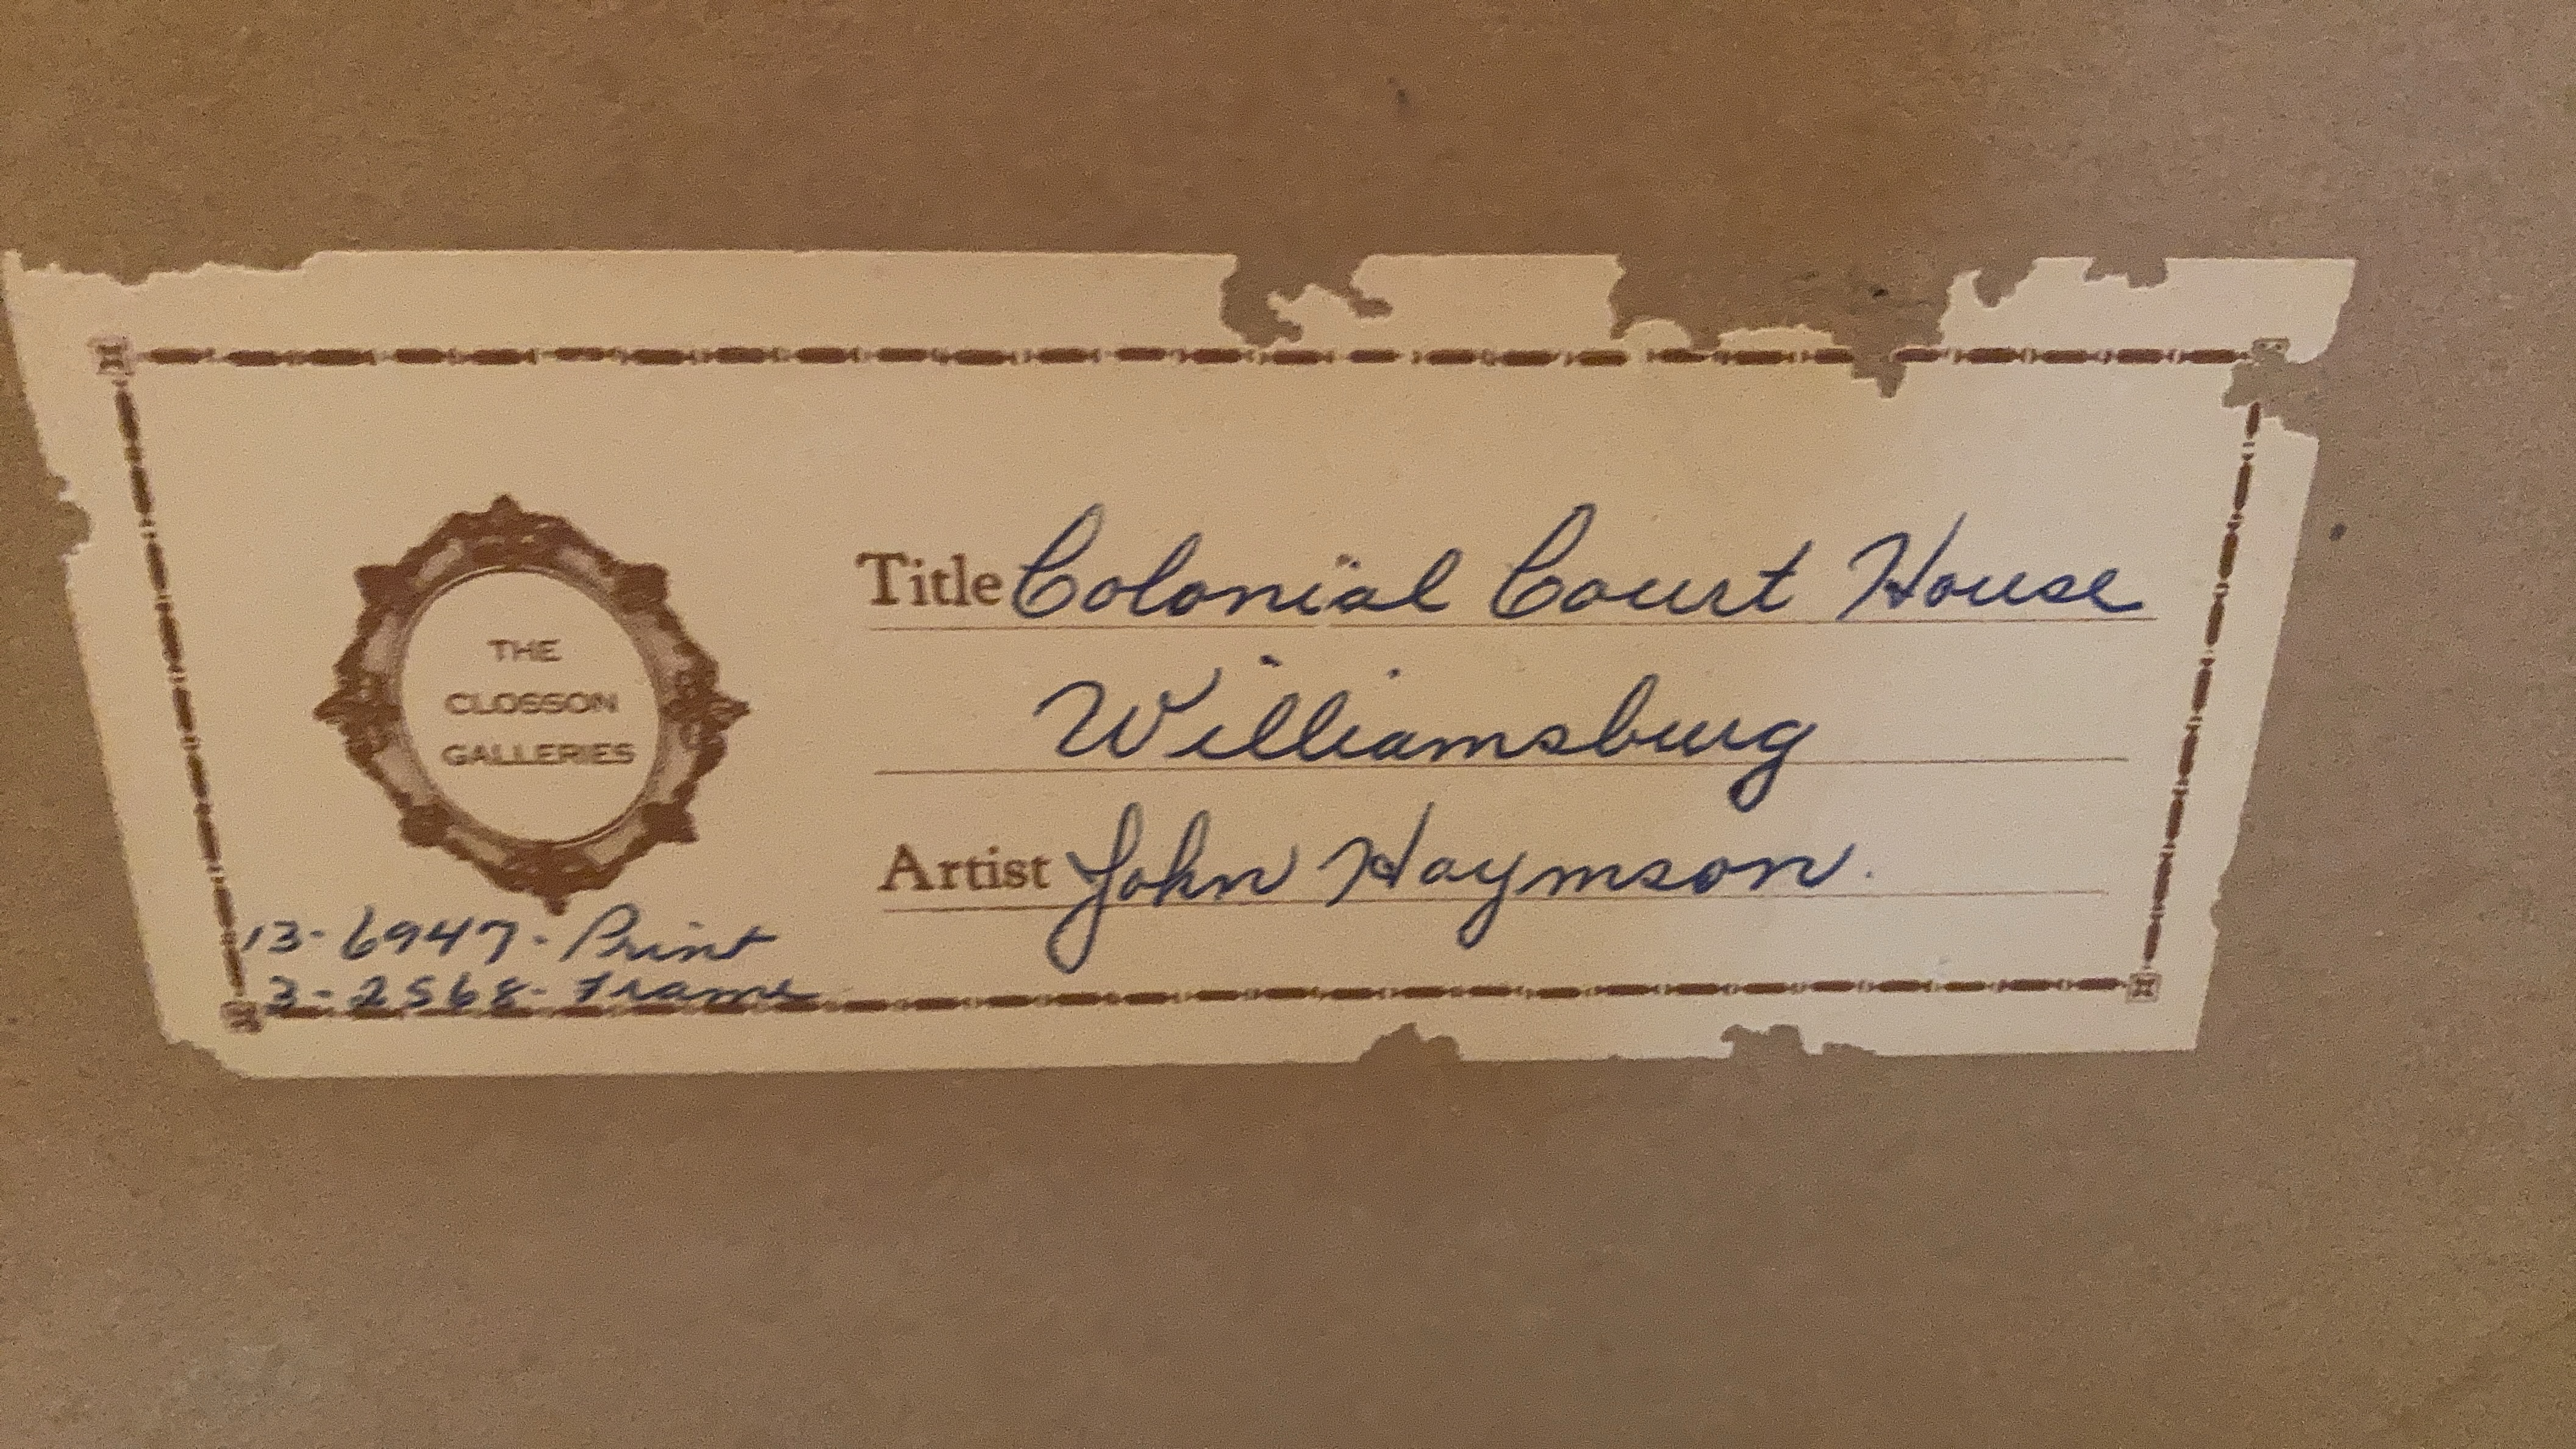 THE
CLOSSON
GALLERIES
Title Colonial Court House
Williamsburg
Artist John Haymson.
13-6947-Print
3-2568-Frame